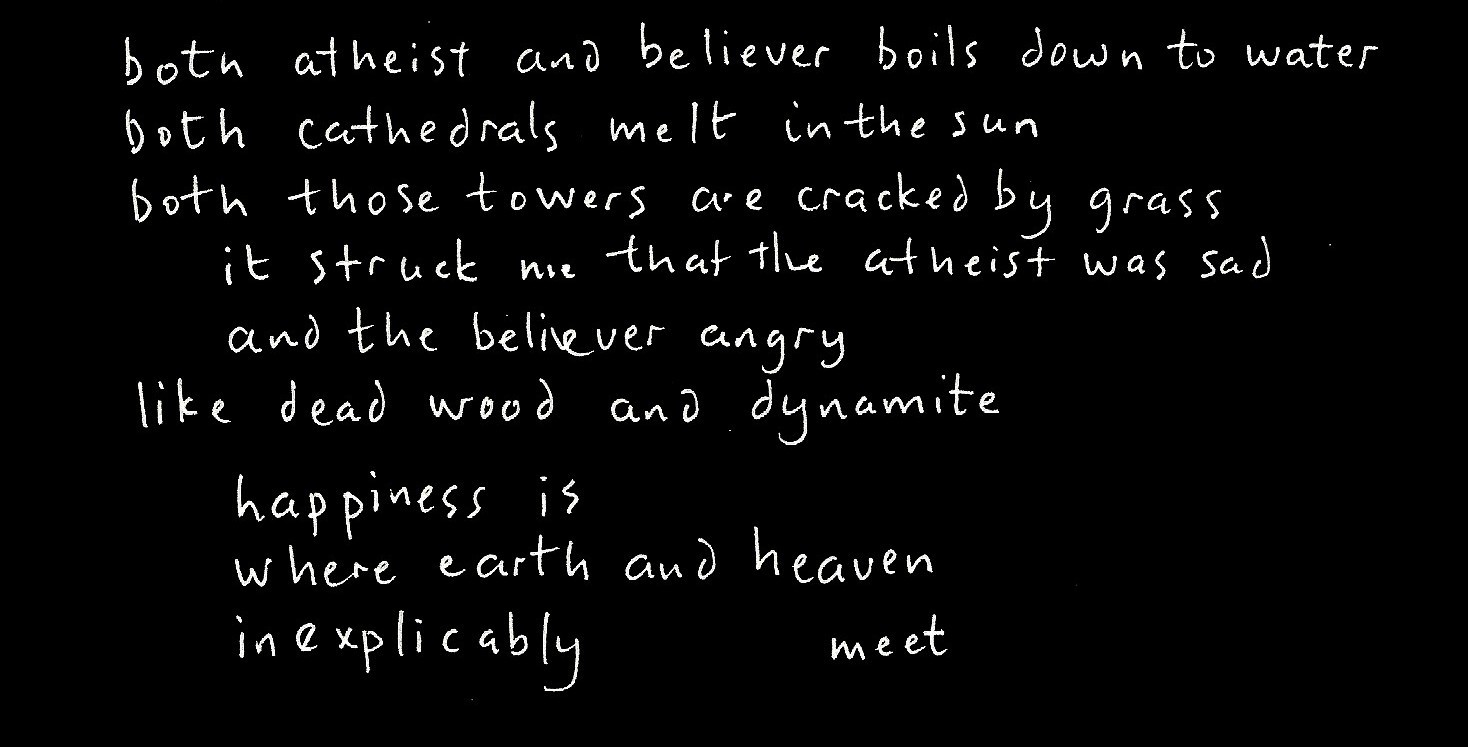 both atheist and believer boils down to water
both cathedrals melt in the sun
both those towers are cracked by grass
it struck me that the atheist was sad
and the believer angry
like dead wood and dynamite
happiness is
where earth and heaven
inexplicably meet